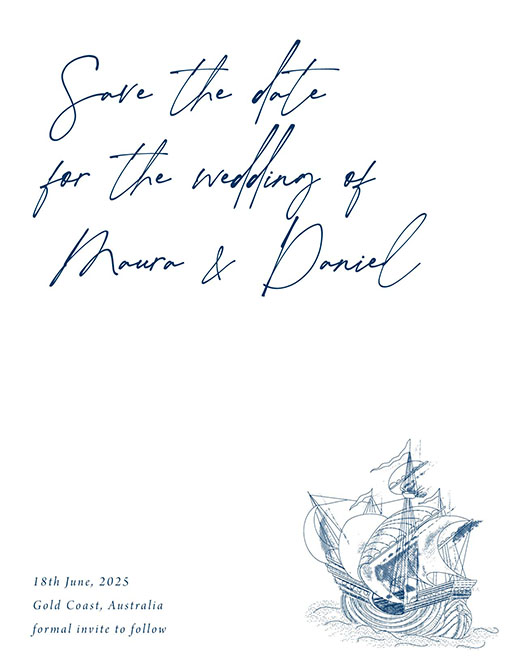 Save the date
for the wedding of
Maura & Daniel
18th June, 2025
Gold Coast, Australia
formal invite to follow